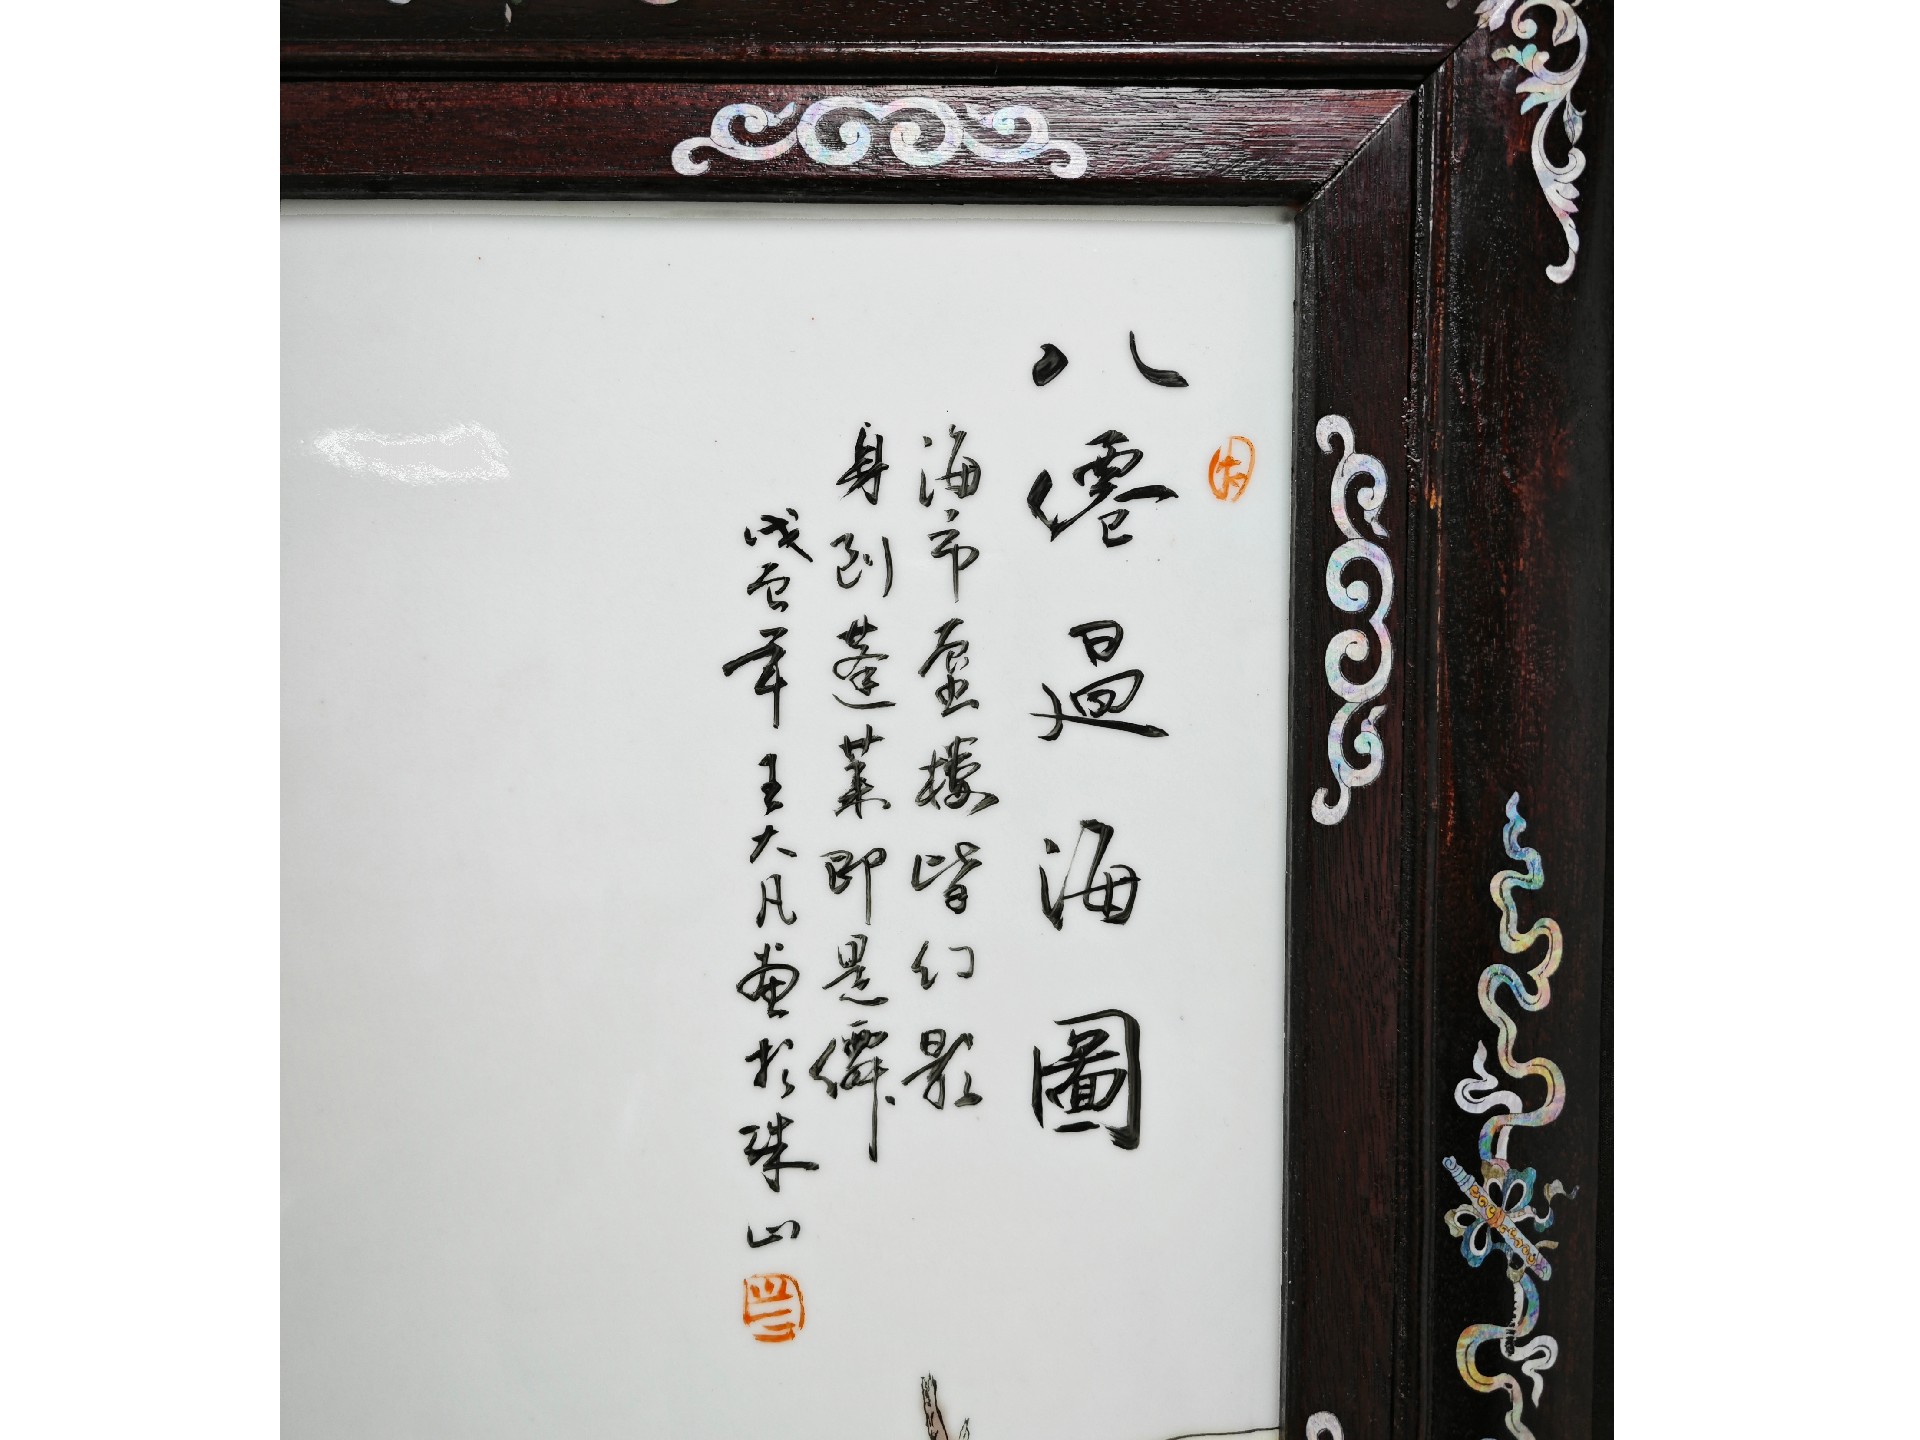 八僊過海圖
海市蜃樓皆幻影
身到蓬萊即是僊
戊年王大凡畫於珠山